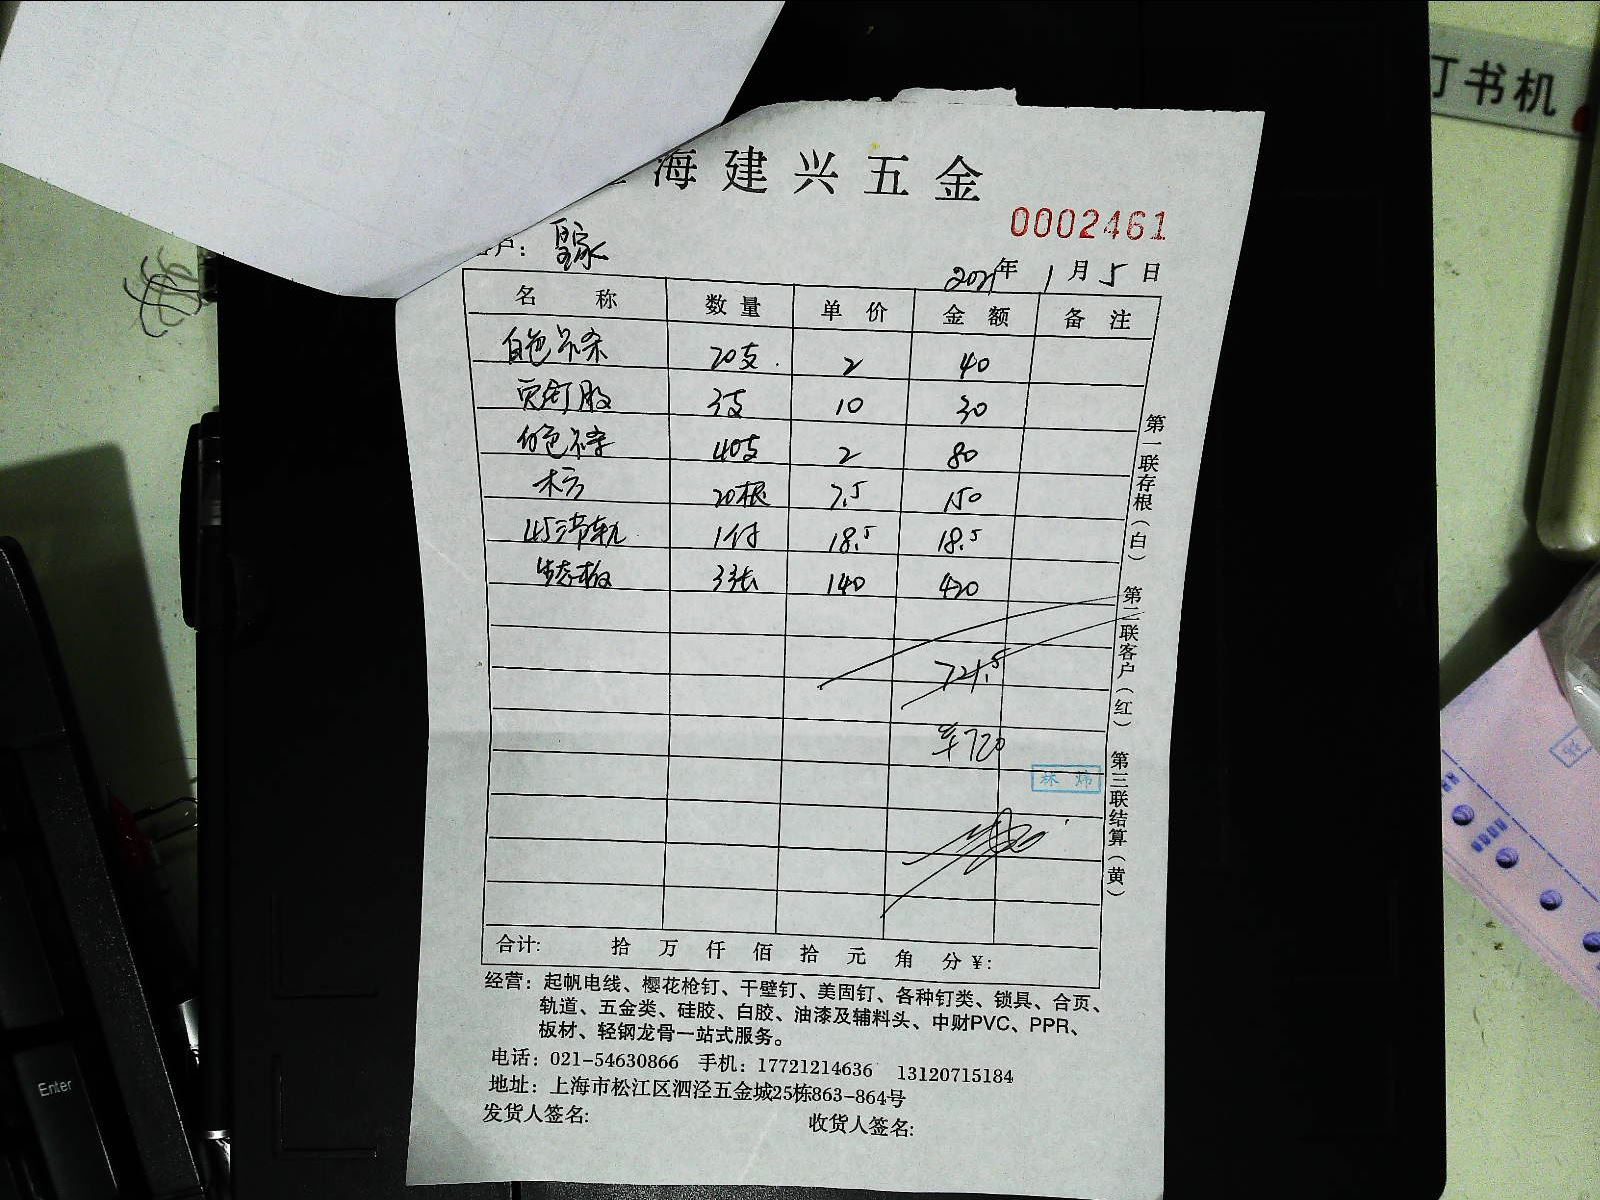 订书机
海建兴五金
0002461
户：
2021年1月5日
名称 数量 单价 金额 备注
白色 20支 2 40
免钉胶 3支 10 30
白色 40支 2 80
木方 20根 7.5 150
45三节轨 1付 18.5 18.5
生态板 3张 140 420
721.5
¥720
林炜
第一联存根（白） 第二联客户（红） 第三联结算（黄）
合计: 拾 万 仟 佰 拾 元 角 分 ¥:
经营：起帆电线、樱花枪钉、干壁钉、美固钉、各种钉类、锁具、合页、
轨道、五金类、硅胶、白胶、油漆及辅料头、中财PVC、PPR、
板材、轻钢龙骨一站式服务。
电话：021-54630866 手机：17721214636 13120715184
地址：上海市松江区泗泾五金城25栋863-864号
发货人签名: 收货人签名:
Enter